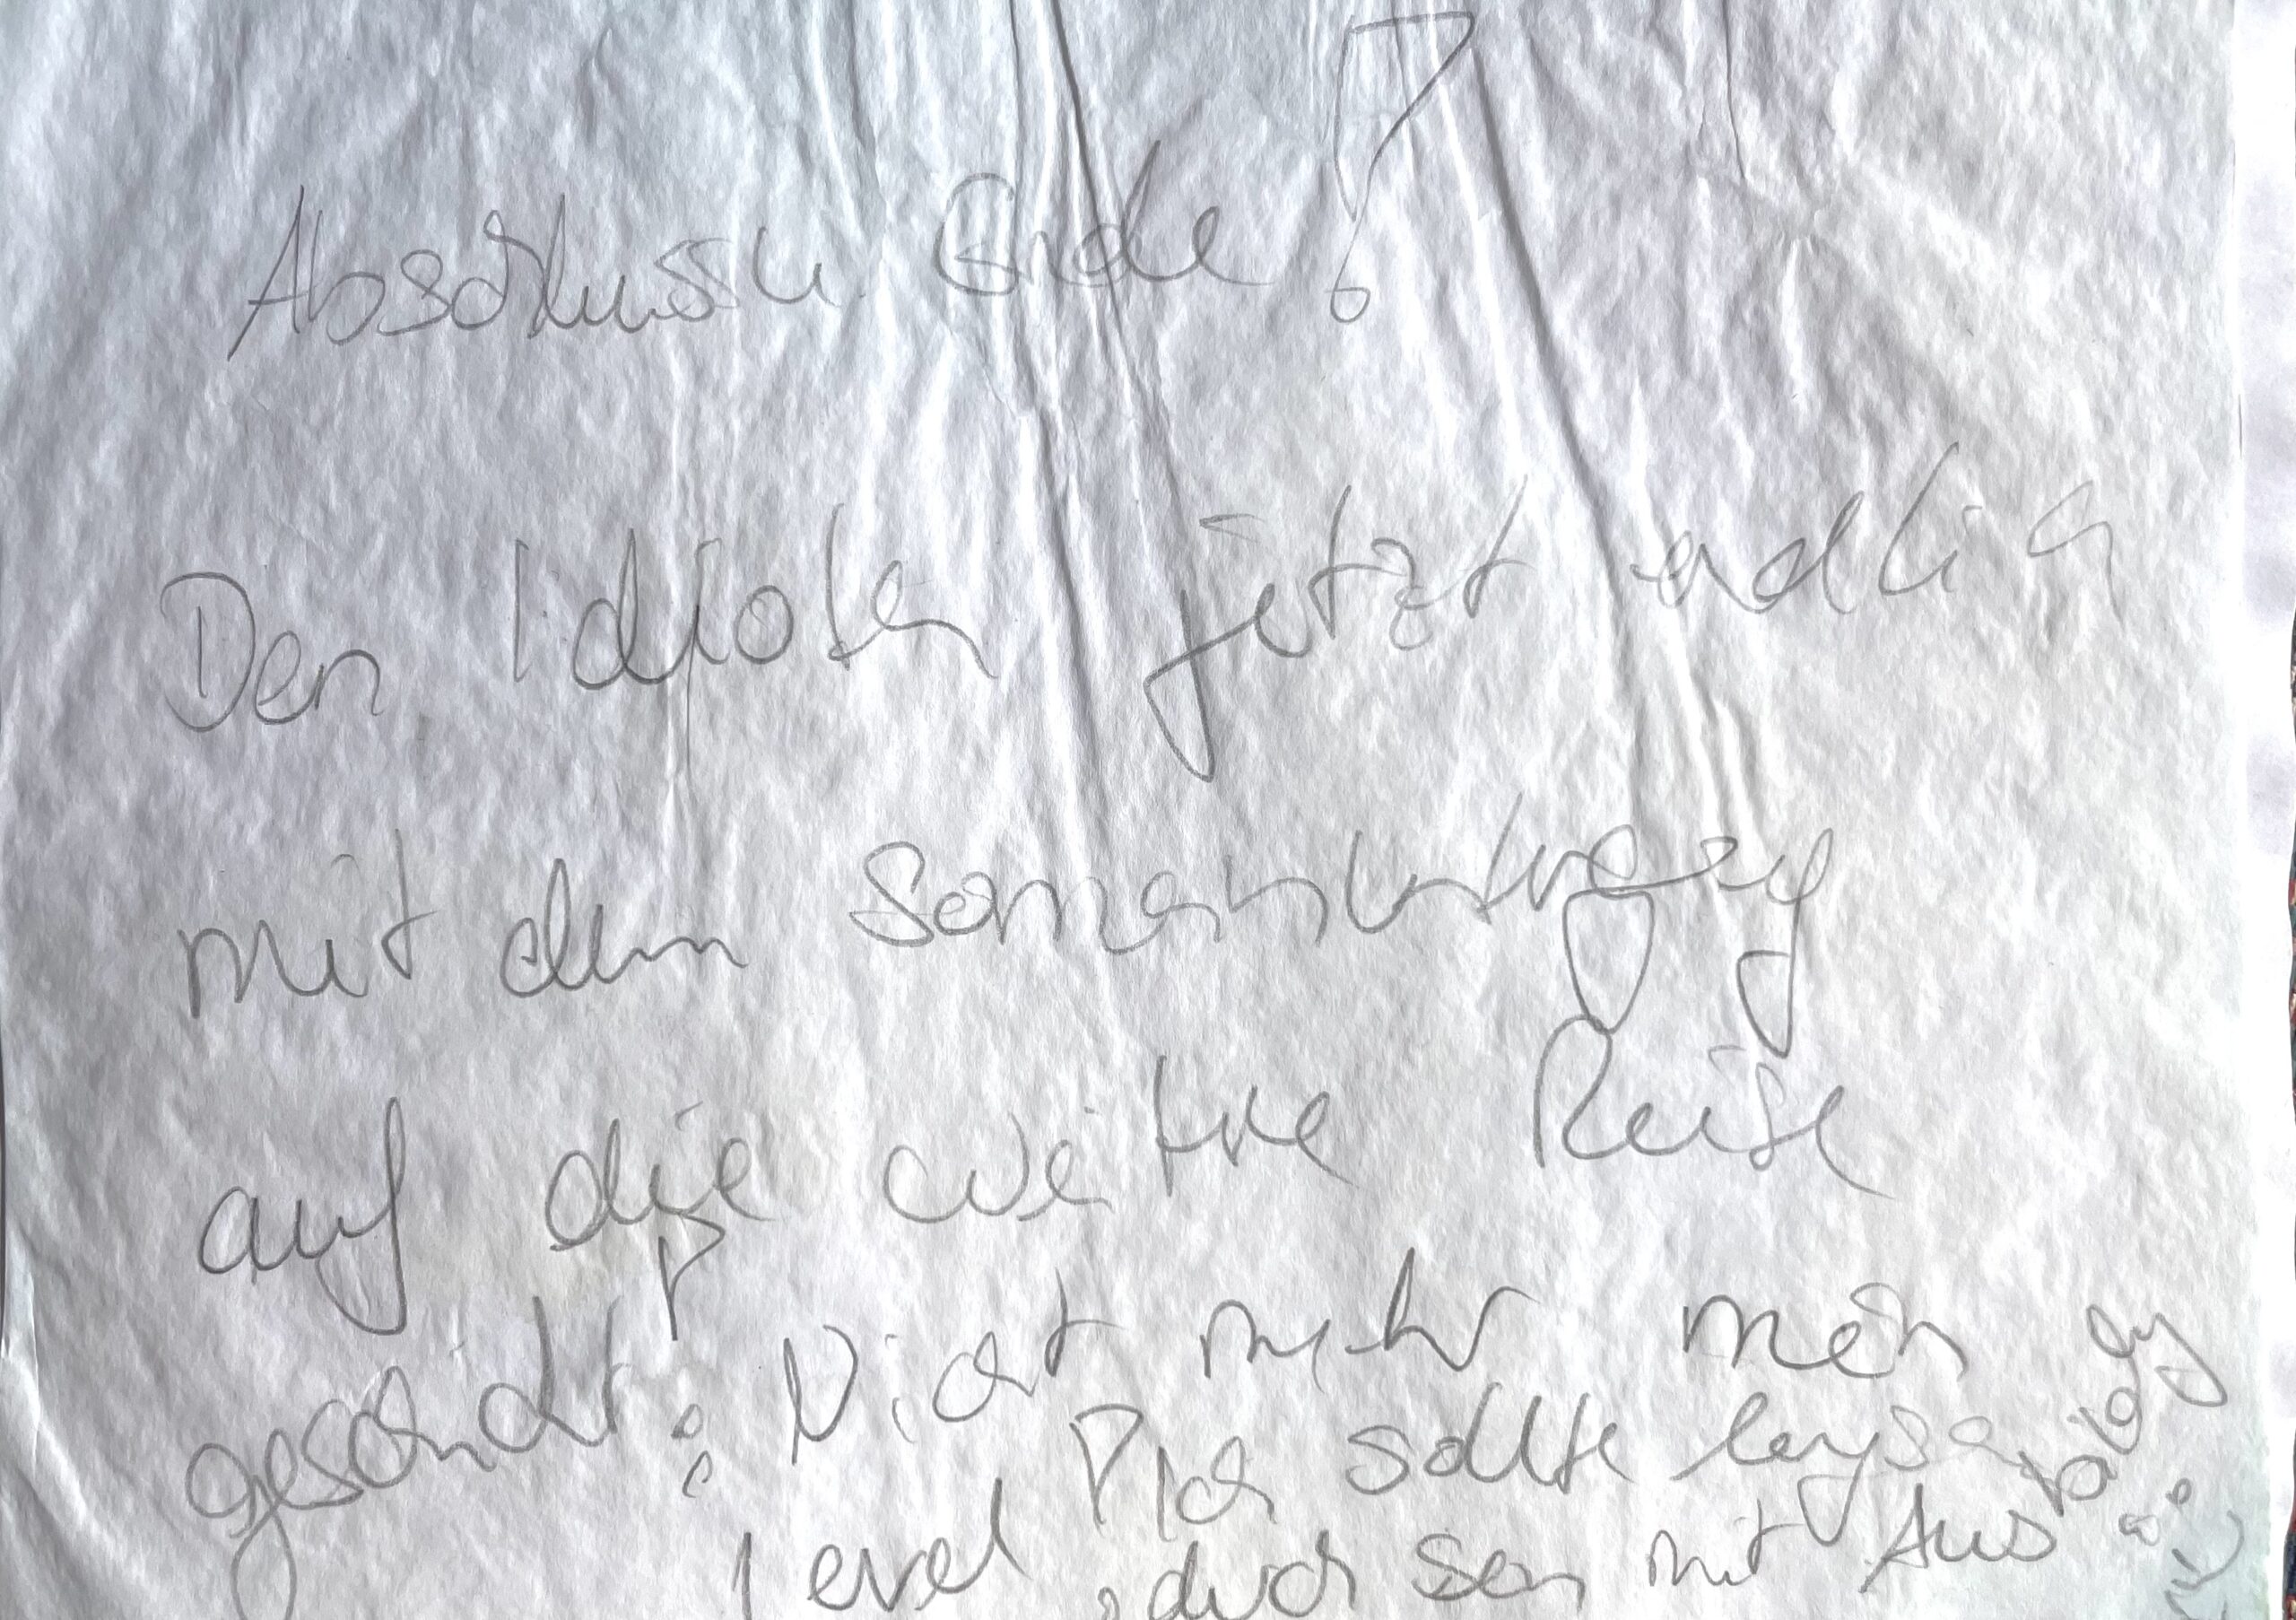 Abschluss u. Ende!
Den Idioten jetzt endlich
mit dem Samenentzug
auf die weitere Reise
geschickt! Nicht mehr mein
Level! Ich sollte langsam
durch sein mit Ausbildung